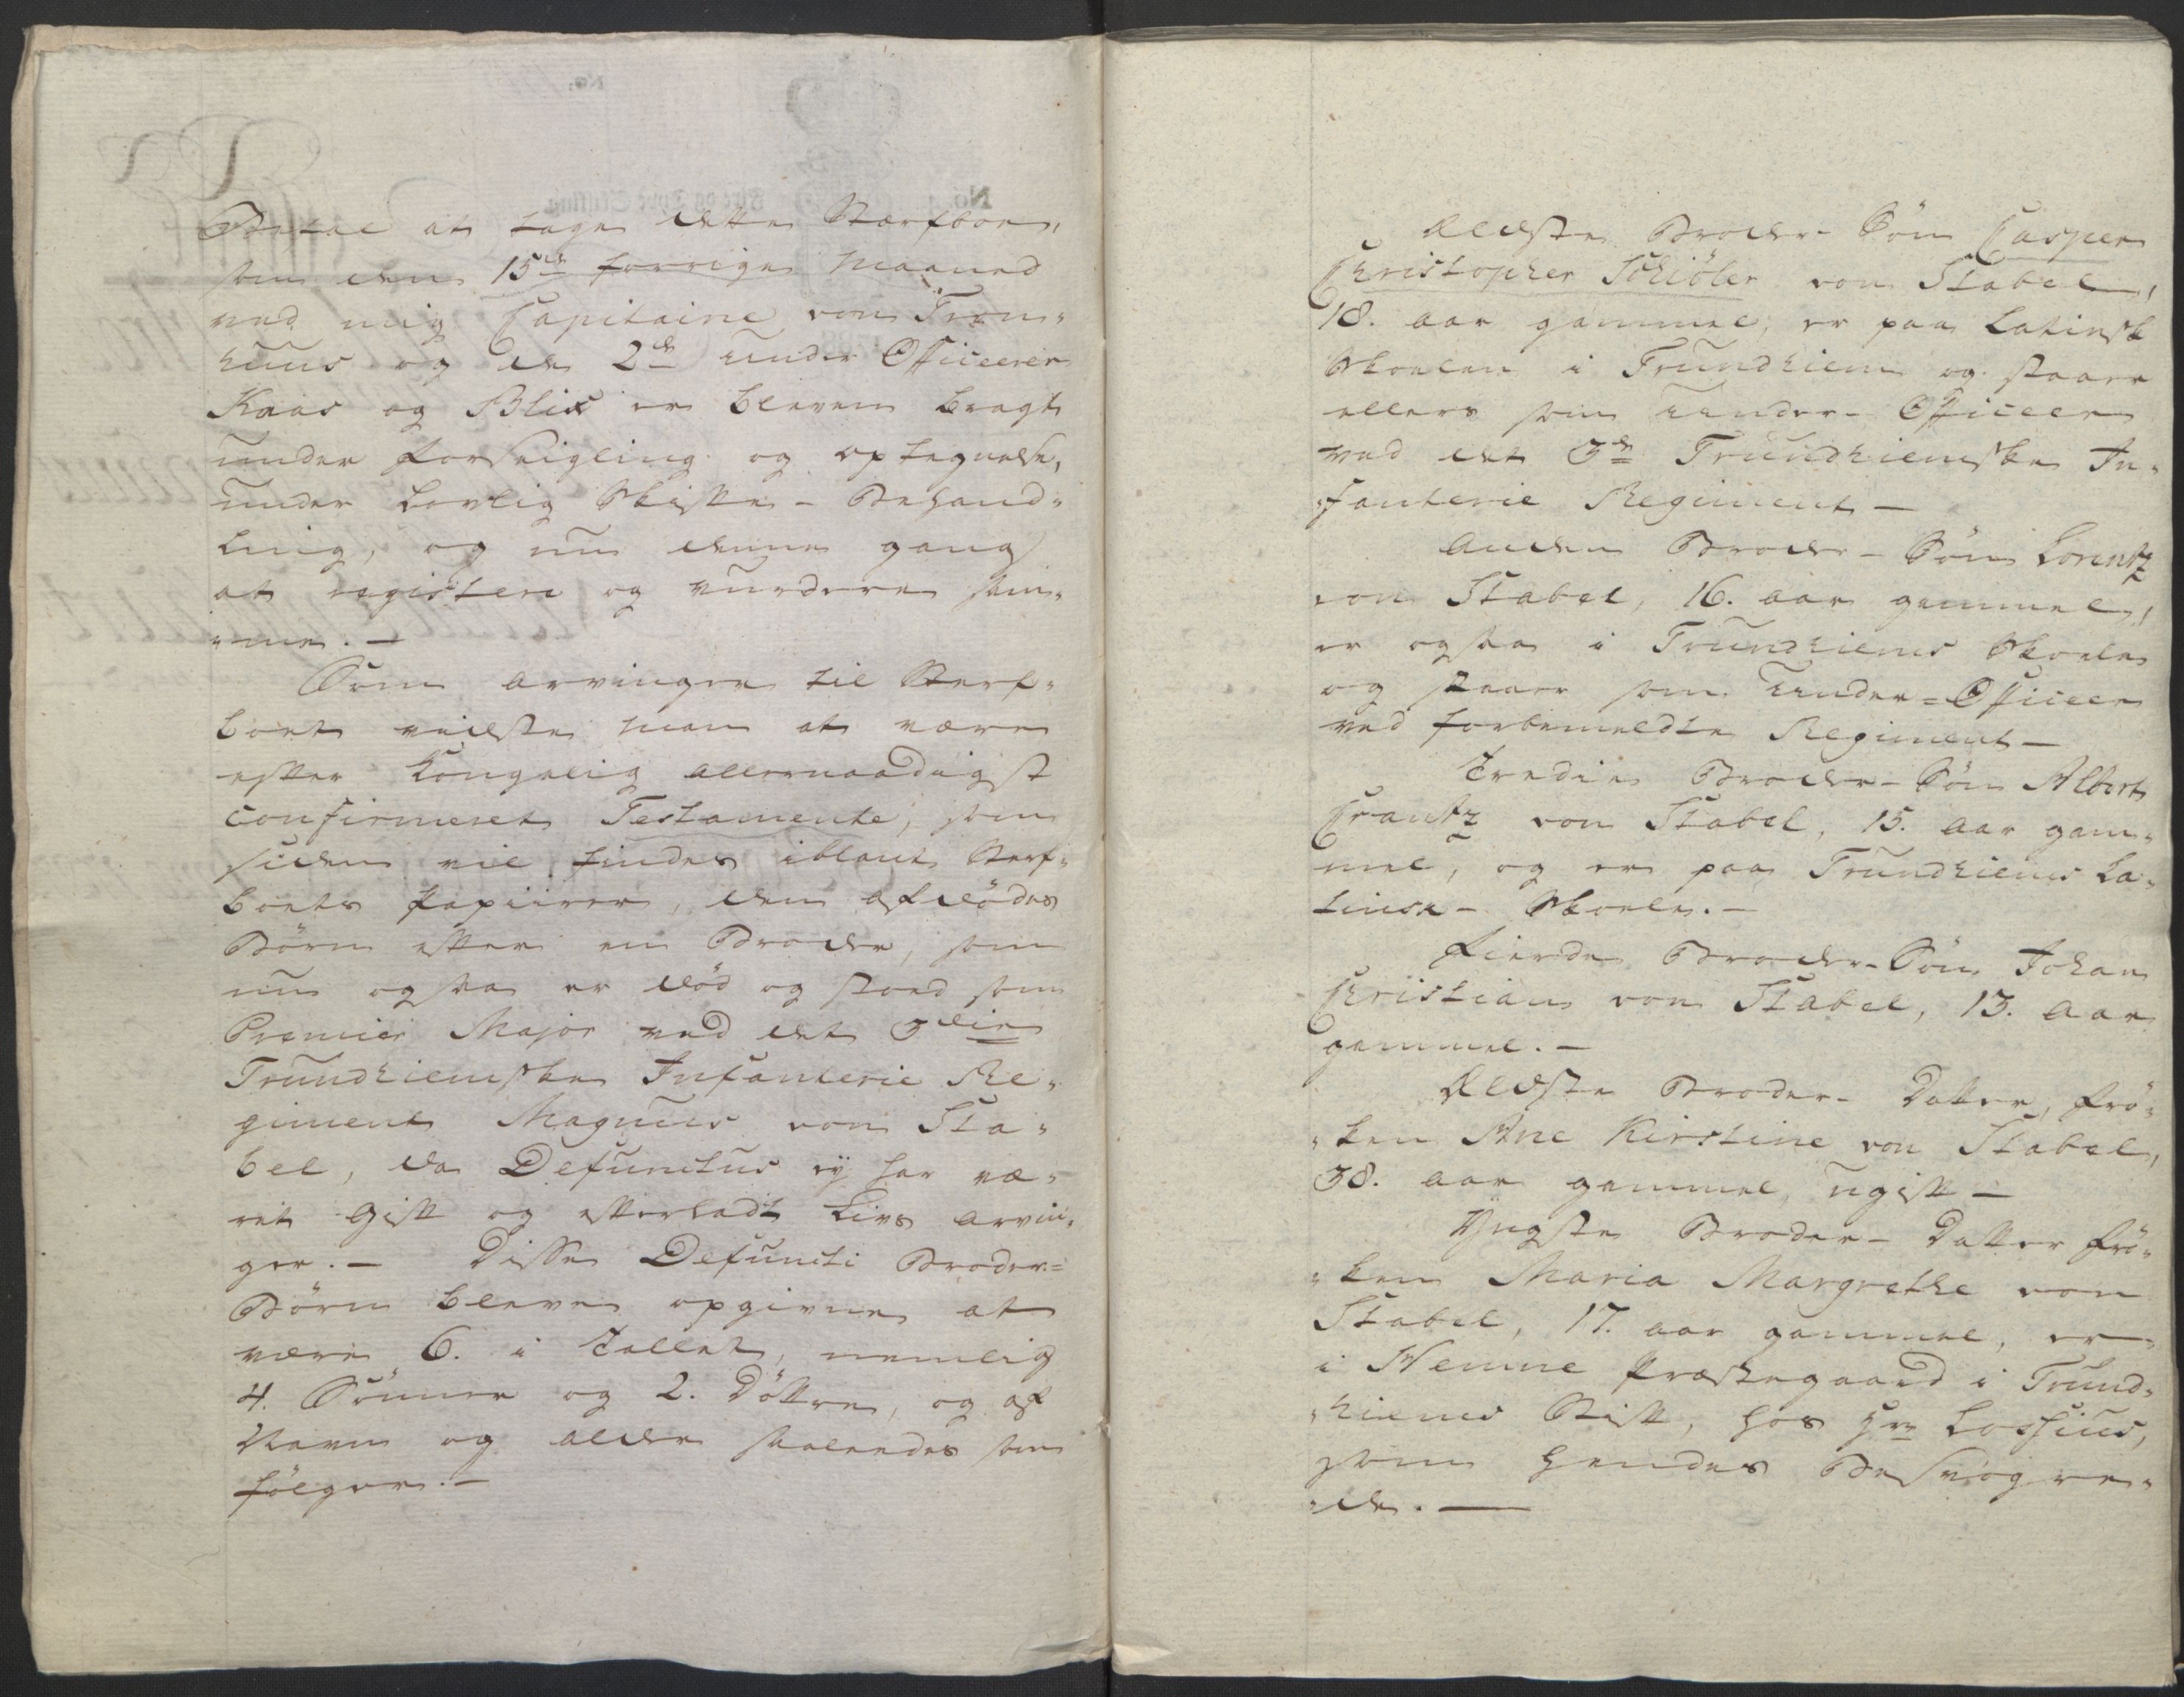 Befal at tage dette Stærfboe,
som den 15de forrige Maaned
ved mig Capitaine von Tron-
huus og de 2de Under Officerer
Kaas og Blix er bleven bragt
under Forseigling og optegnelse,
under Lovlig Skifte-Behand-
ling, og nu denne gang
at registere og vurdere sam-
me. —
Som Arvinger til Sterf-
boet vidste man at være
efter Kongelig allernaadigst
confirmeret Testamente, som
siden vil findes iblant Sterf-
boets Papiirer, den afdødes
Børn efter en Broder, som
nu ogsaa er død og stoed som
Premier Major ved det 3die
Trundhiemske Infanterie Re-
giment Magnus von Sta-
bel, da Defunctus ej har væ-
ret Gift og efterladt Livs Arvin-
ger. — Disse Defuncti Broder-
Børn bleve opgivne at
være 6. i Tallet, nemlig
4. Sønner og 2. Døttre, og af
Navn og alder saaledes som
følger. —
Ældste Broder-Søn Casper
Christopher Schiöler von Stabel,
18. aar gammel, er paa Latinsk
Skoelen i Trundhiem og staaer
ellers som Under-Officeer
ved det 3de Trundhiemske In-
fanterie Regiment —
Anden Broder-Søn Lorentz
von Stabel, 16. aar gammel,
er ogsaa i Trundhiems Skoele
og staaer som Under-Officeer
ved forbemeldte Regiment —
Tredie Broder-Søn Albert
Crantz von Stabel, 15. aar gam-
mel, og er paa Trundhiems La-
tinsk- Skoele. —
Fierde Broder-Søn Johan
Christian von Stabel, 13. aar
gammel. —
Ældste Broder-Datter, Frö-
ken Ane Kirstine von Stabel,
38. aar gammel, ugift —
Yngste Broder-Datter Frö-
ken Maria Margrethe von
Stabel, 17. aar gammel, er
i Hemne Præstegaard i Trund-
hiems Stift, hos Hr. Lossius,
som hendes Besvogre-
de. —